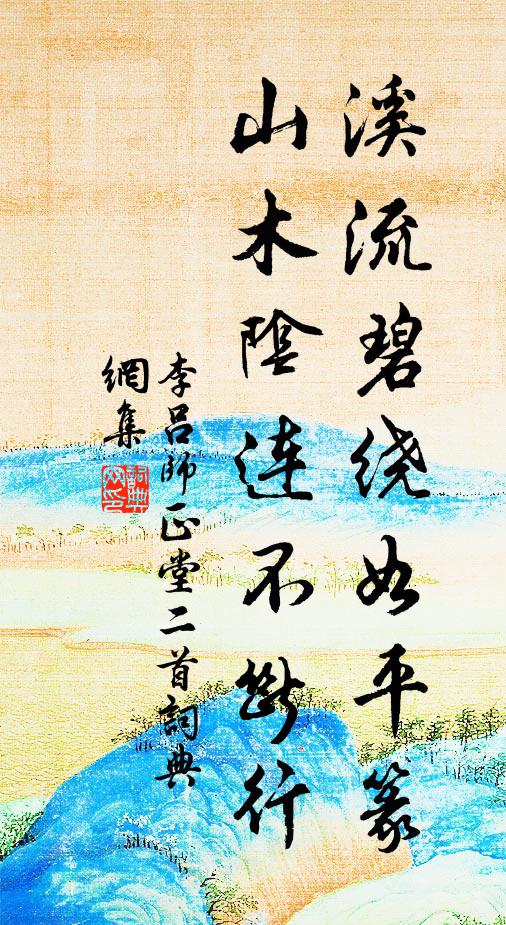 溪流碧绕如平篆
山木陰连不断行
李吕師正堂二首詞典
網集